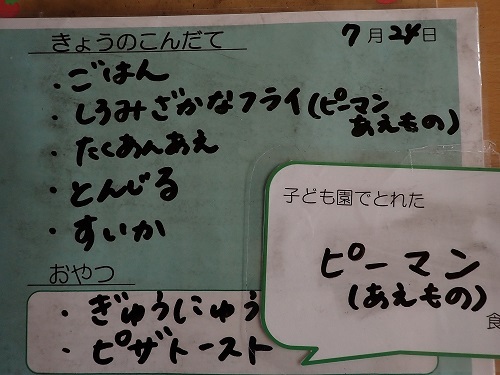 きょうのこんだて 7月24日
・ごはん
・しろみざかなフライ(ピーマン
あえもの)
・たくあんあえ
・とんじる
・すいか
おやつ
・ぎゅうにゅう
・ピザトースト
子ども園でとれた
ピーマン
(あえもの)
食